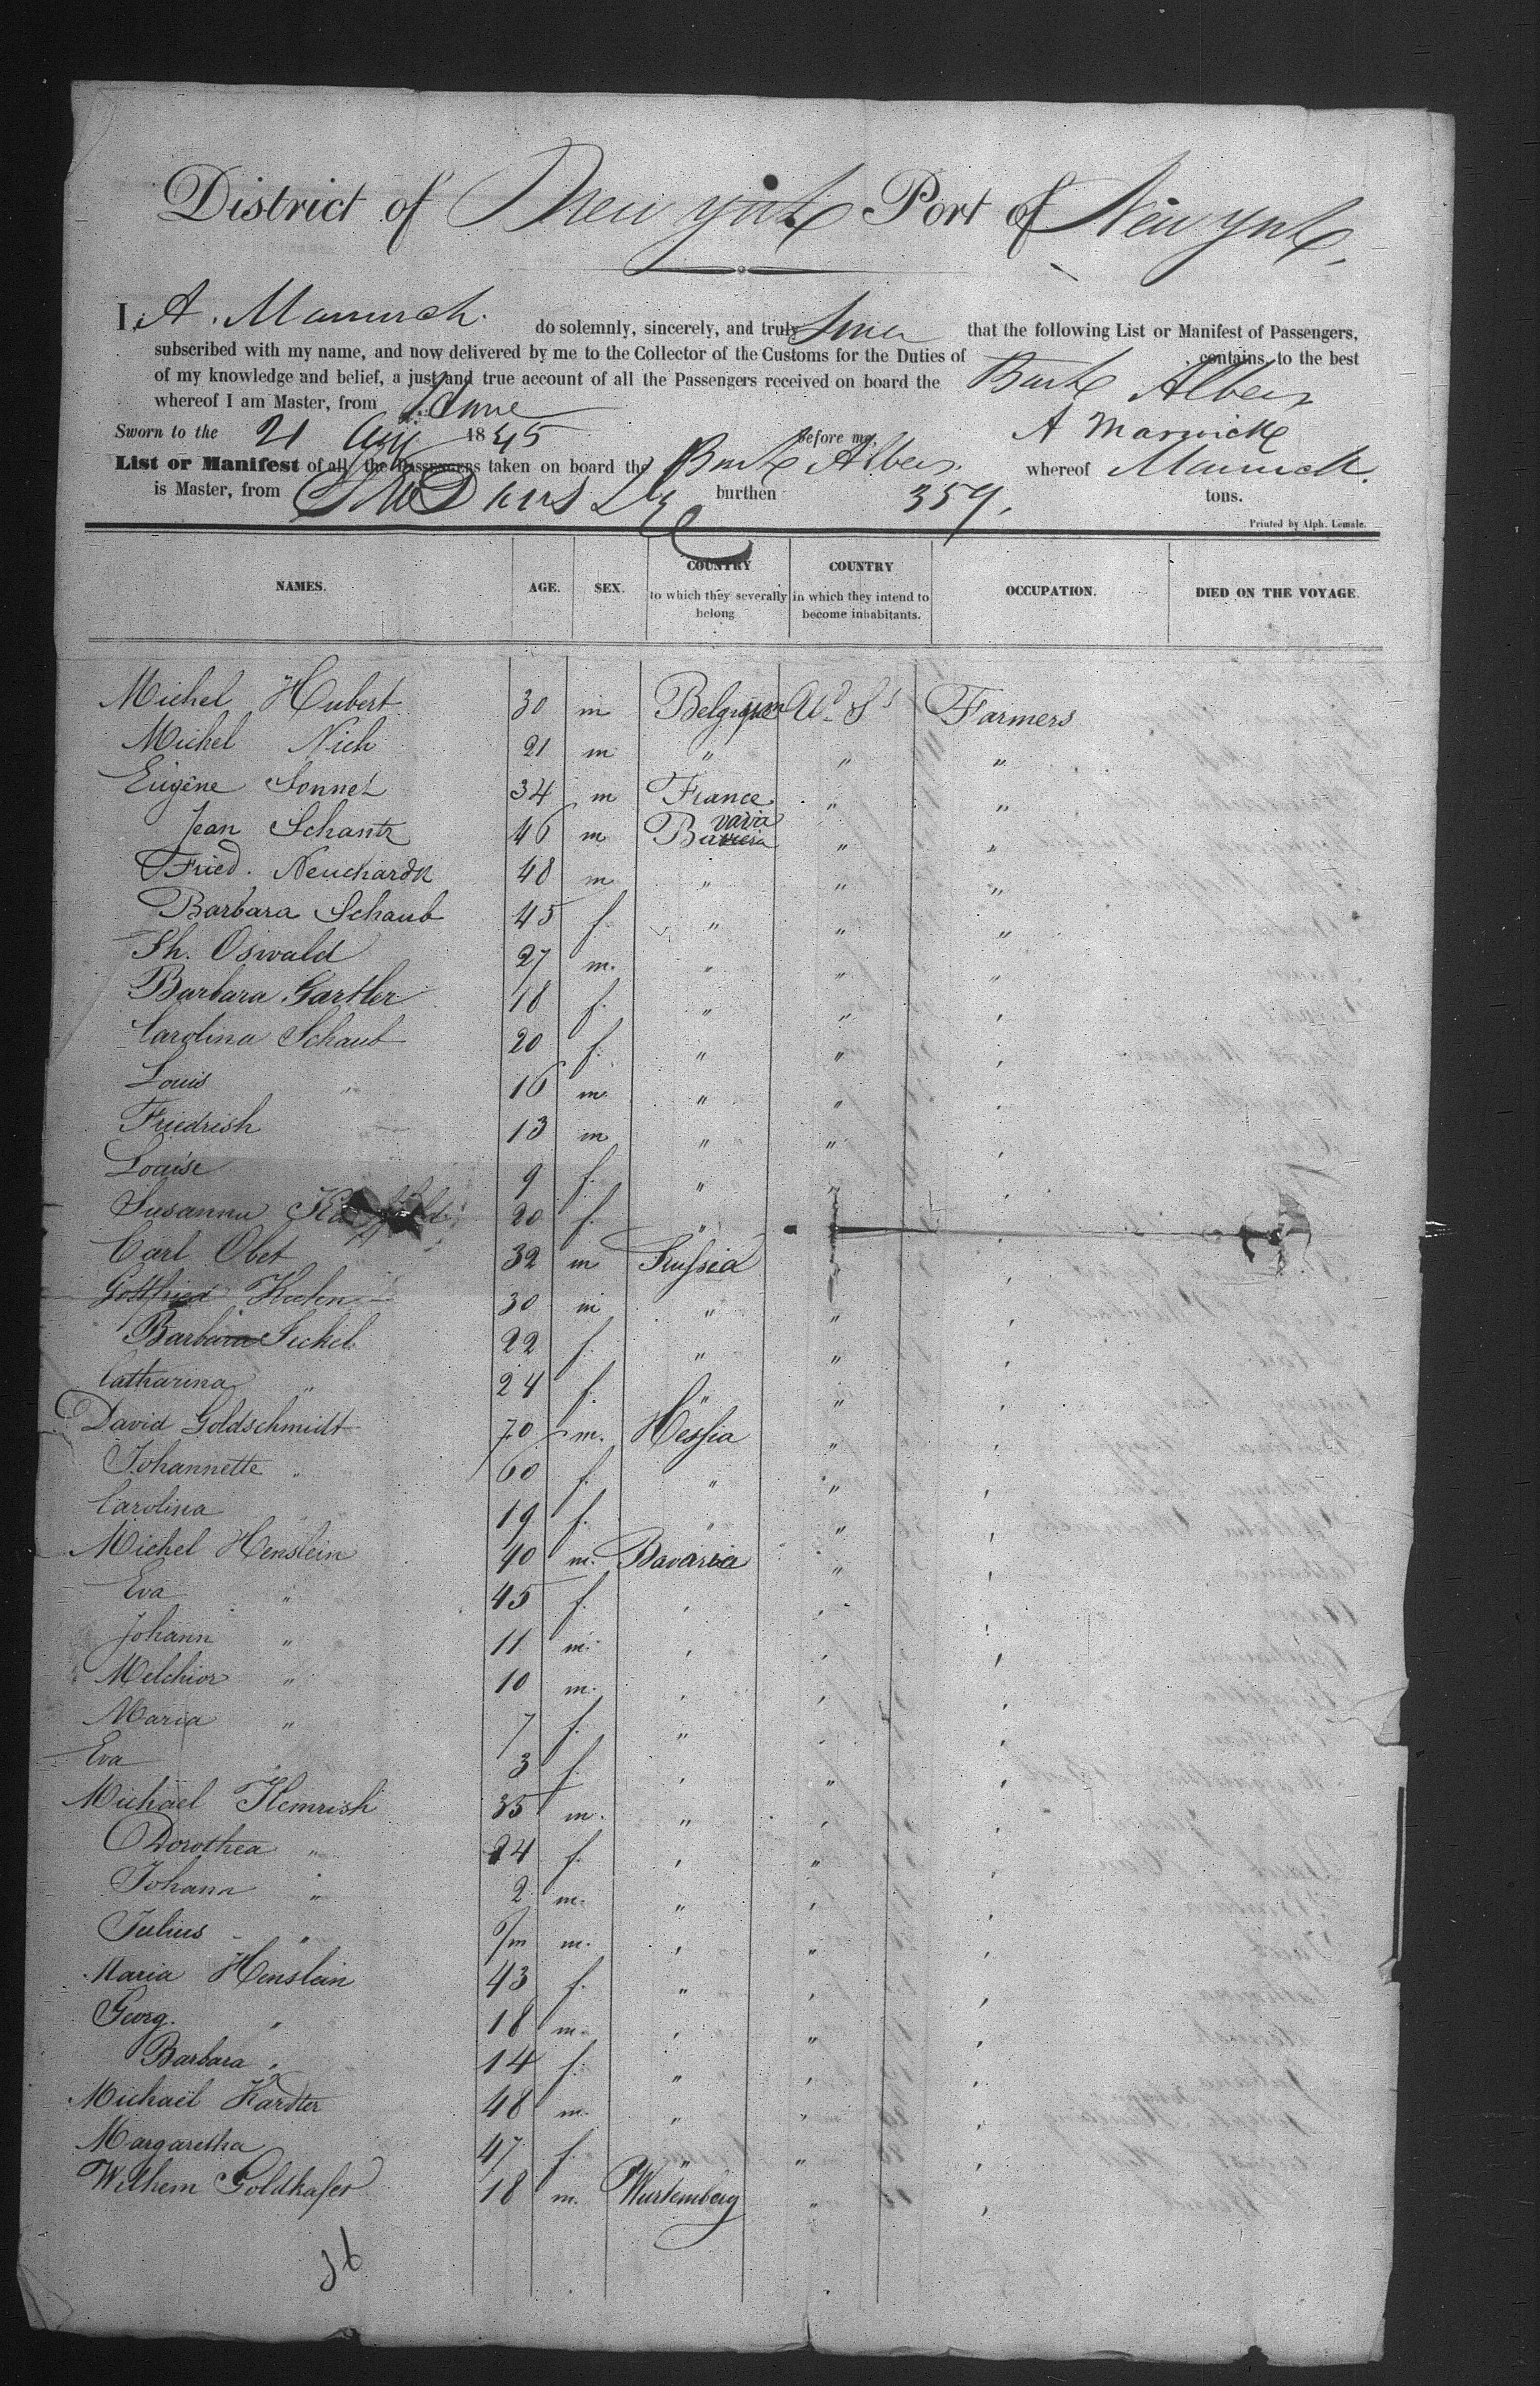 District of New York Port of New York
I, A. Marwick do solemnly, sincerely, and truly swear that the following List or Manifest of Passengers,
subscribed with my name, and now delivered by me to the Collector of the Customs for the Duties of contains, to the best
of my knowledge and belief, a just and true account of all the Passengers received on board the Bark Albers
whereof I am Master, from Havre
Sworn to the 21 Aug 1845 before me, A Marwick
List or Manifest of all the Passengers taken on board the Bark Albers whereof Marwick
is Master, from burthen 359. tons.
Printed by Alph. Lemale.
NAMES. AGE. SEX. COUNTRY to which they severally belong COUNTRY in which they intend to become inhabitants. OCCUPATION. DIED ON THE VOYAGE.
Michel Hubert 30 m Belgium Ud Ss Farmers
Michel Nich 21 m " " "
Eugène Sonnet 34 m France " "
Jean Schantz 46 m Bavaria " "
Fried. 48 m " " "
Barbara Schaub 45 f. " " "
Th. Oswald 27 m. " " "
Barbara Gartler 18 f. " " "
Carolina Schaub 20 f. " " "
Louis " 16 m " " "
Friedrish 13 m " " "
Louise 9 f. " " "
Susanna 20 f. " "
Carl Obet 32 m Prussia " "
Gottfried Kuhn 30 m " " "
Barbara Seckel 22 f. " " "
Catharina " 24 f. " " "
David Goldschmidt 70 m. Hessia " "
Johannette " 60 f. " " "
Carolina 19 f. " " "
Michel Henslein 40 m. Bavaria " "
Eva " 45 f. " " "
Johann " 11 m. " " "
Melchior " 10 m. " " "
Maria " 7 f. " " "
Eva 3 f. " " "
Michael Hemrish 35 m. " " "
Dorothea " 24 f. " " "
Johann " 2 m. " " "
Julius " 6/m m. " " "
Maria Henslein 43 f. " " "
Georg. " 18 m. " " "
Barbara " 14 f. " " "
Michaël Kardter 48 m. " " "
Margaretha 47 f. " " "
Wilhem Goldkafer 18 m. Wurtemberg " "
36